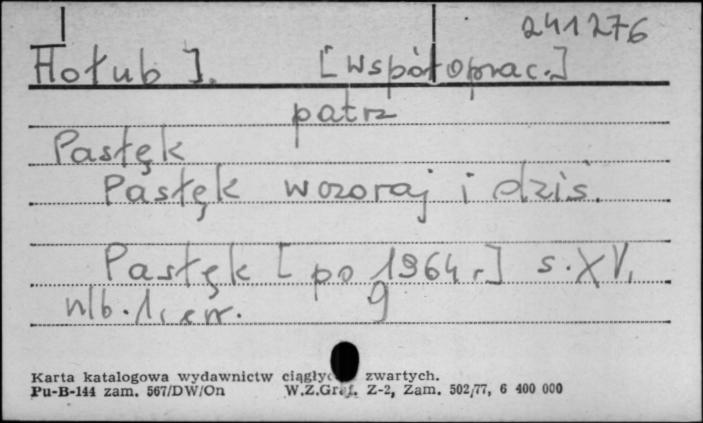 241276
Hołub J. [Współoprac.]
patrz
Pasłęk
Pasłęk wczoraj i dziś.
Pasłęk [po 1964 r.] s. XV,
nlb. 1, err. 9
Karta katalogowa wydawnictw zwartych.
Pu-B-144 zam. 567/DW/On W.Z.Graf. Z-2, Zam. 502/77, 6 400 000